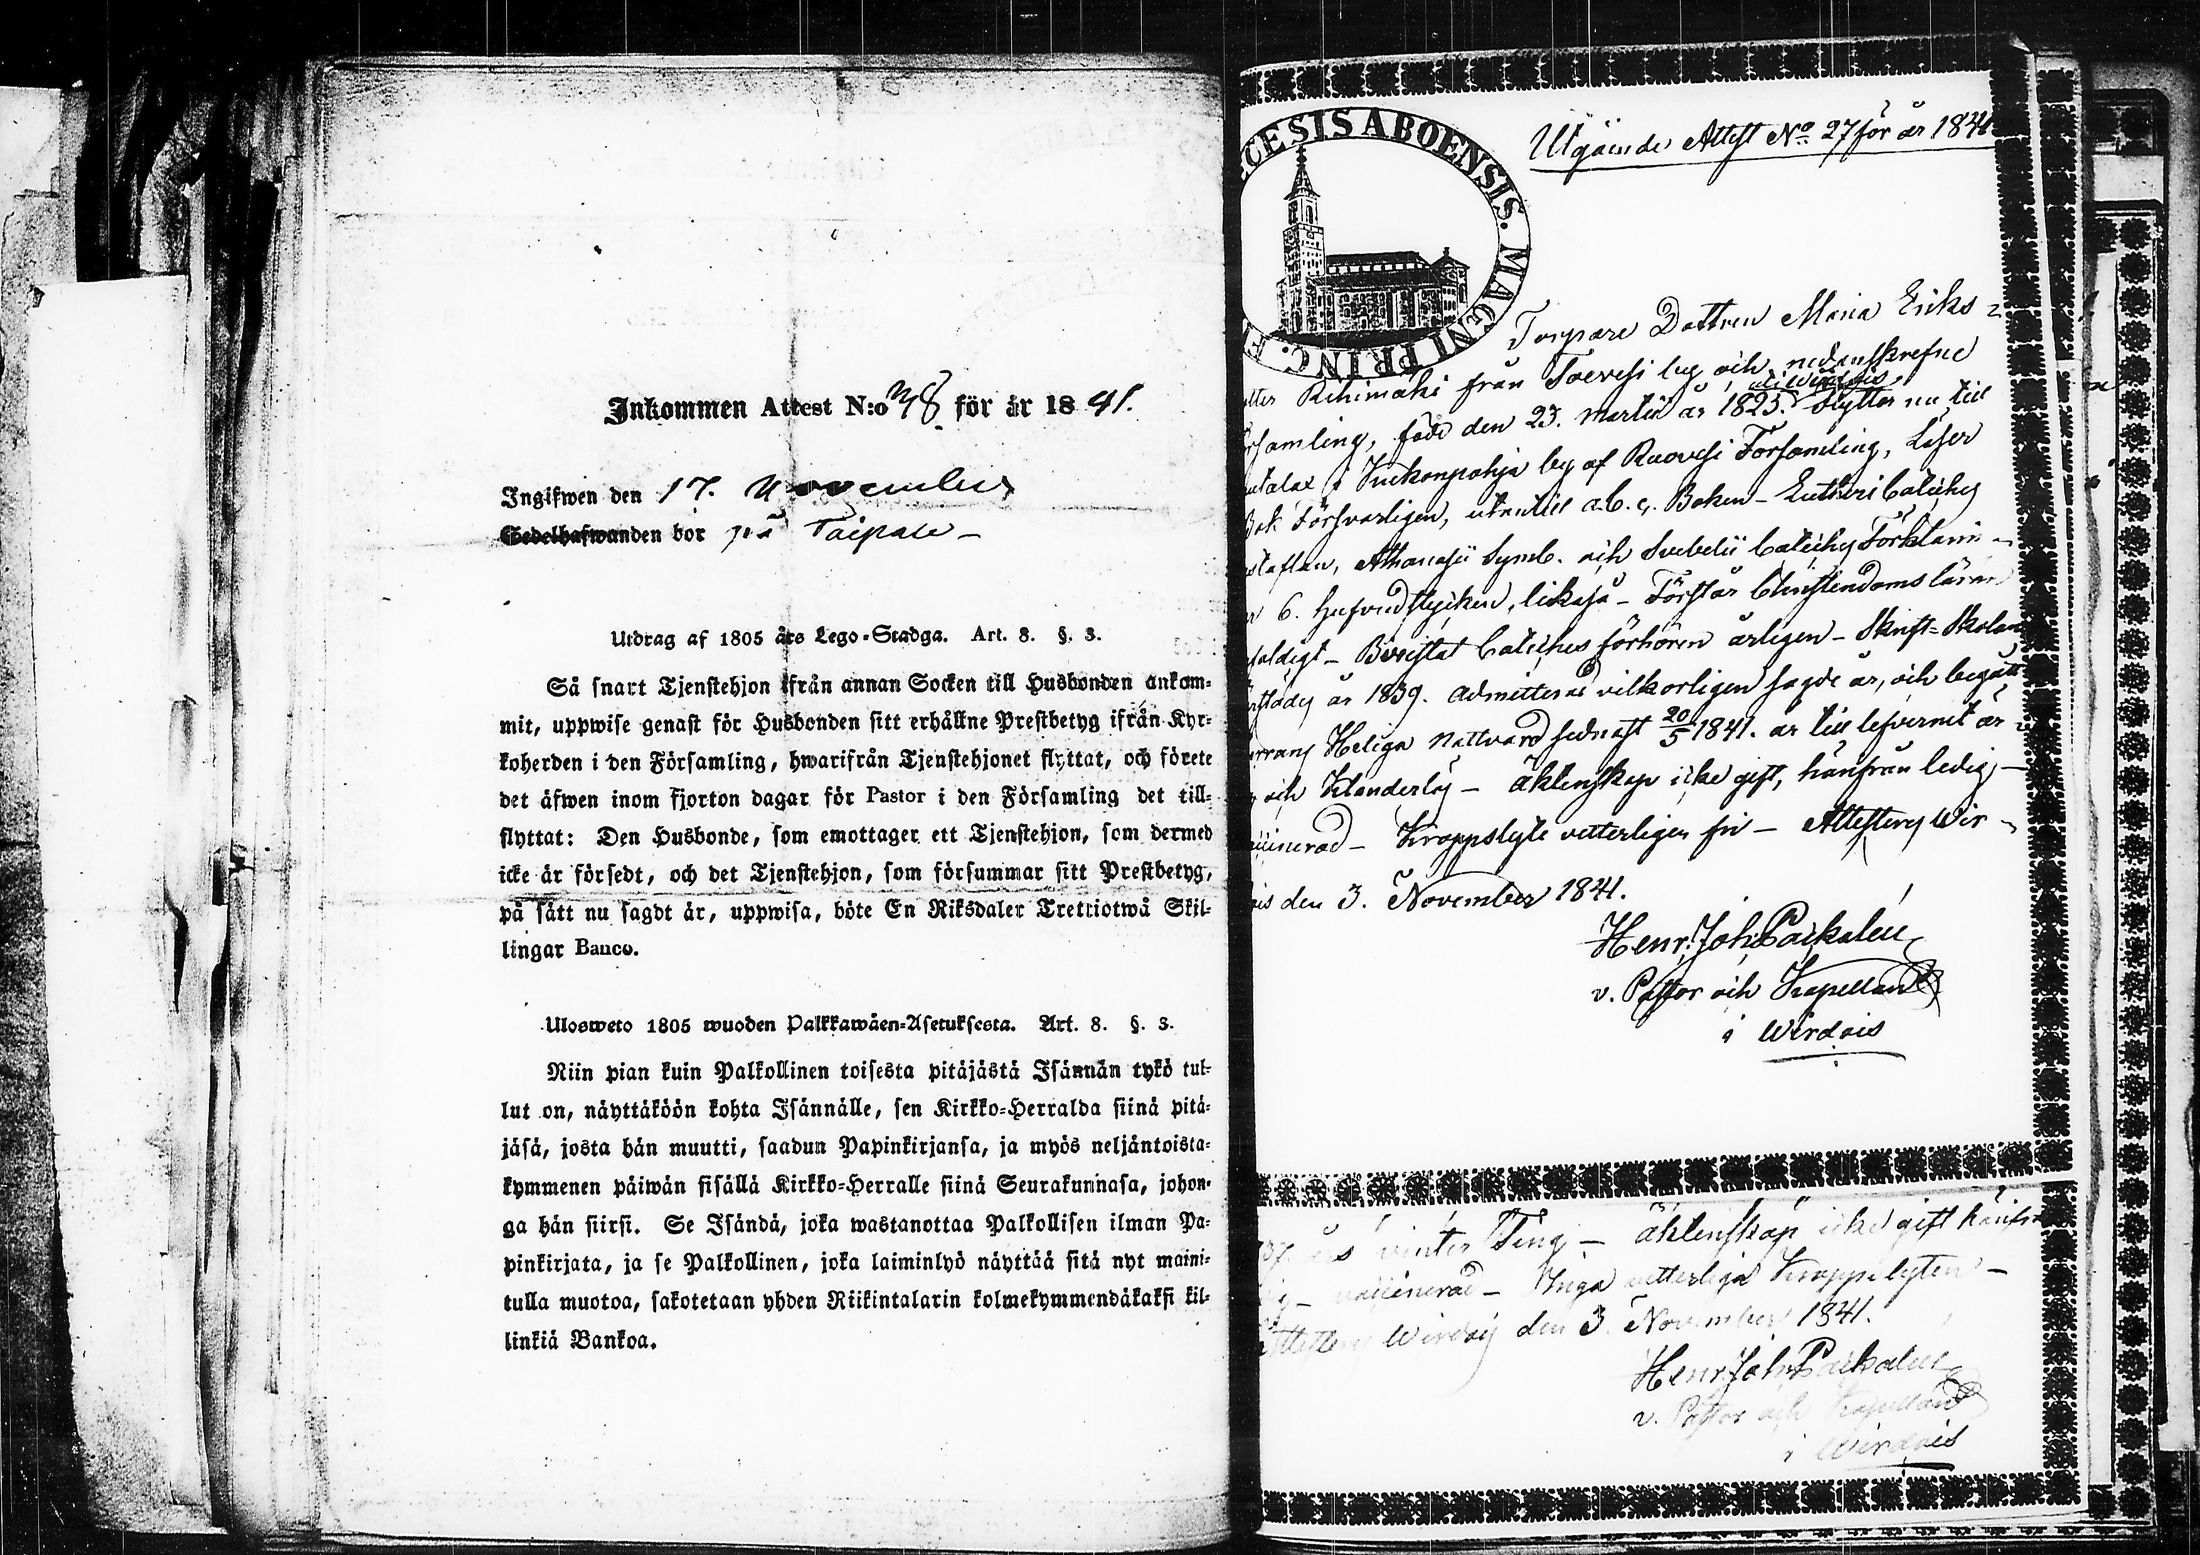 Inkommen Attest N:o 38 för år 1841.
Ingifwen den 17. November
Sedelhafwanden bor på Taipale –
Utdrag af 1805 års Lego-Stadga. Art. 8. §. 3.
Så snart Tjenstehjon ifrån annan Socken till Husbonden ankom-
mit, uppwise genast för Husbonden sitt erhållne Prestbetyg ifrån Kyr-
koherden i den Församling, hwarifrån Tjenstehjonet flyttat, och förete
det äfwen inom fjorton dagar för Pastor i den Församling det till-
flyttat: Den Husbonde, som emottager ett Tjenstehjon, som dermed
icke är försedt, och det Tjenstehjon, som försummar sitt Prestbetyg,
på sätt nu sagdt är, uppwisa, böte En Riksdaler Trettiotwå Skil-
lingar Banco.
Ulosweto 1805 wuoden Palkkawäen-Asetuksesta. Art. 8. §. 3.
Niin pian kuin Palkollinen toisesta pitäjästä Isännän tykö tul-
lut on, näyttäköön kohta Isännälle, sen Kirkko-Herralda siinä pitä-
jäsä, josta hän muutti, saadun Papinkirjansa, ja myös neljäntoista-
kymmenen päiwän sisällä Kirkko-Herralle siinä Seurakunnasa, johon-
ga hän siirsi. Se Isändä, joka wastanottaa Palkollisen ilman Pa-
pinkirjata, ja se Palkollinen, joka laiminlyö näyttää sitä nyt maini-
tulla muotoa, sakotetaan yhden Riikintalarin kolmekymmendäkaksi kil-
linkiä Bankoa.
CESIS ABOENSIS. MAGNI PRINC. F
Utgåinde Attest No 27 för år 1841
Torpare Dottren Maria Eriks-
Rihimäki från Toevesi by och nedanskrefne
samling, född den 23. Martii år 1825. flyttar nu till
i Kuckonpohja by af Ruovesi Församling, Läser
Bok Försvarligen, utantill a.b.c. Boken – Lutheri Cateches
taflan, Athanasii Symb. och Svebelii Cateches Förklarin-
6. hufvudstycken, likaså – Förstår Christendoms läran
faldigt – Bevistat Catéches förhören årligen – Skrift-Skolan
år 1839. admitterad vilkorligen sagde år, och begått
Herrans Heliga Nattvard sednast 20/5 1841. är till lefvernet är-
och Klanderlös – äktenskap icke gift, hänfrån ledig –
vaccinerad – Kroppslyte vetterligen fri – Attesteras Wir-
dois den 3. November 1841.
Henr. Joh. Paikalén
v. Pastor och Kapellan
i Wirdois
37. års vinter Ting – äktenskap icke gift hänfrån
– vaccinerad – Inga vetterliga Kroppslyten –
Attesteras Wirdois den 3. November 1841.
Henr. Joh. Paikalén
v. Pastor och Kapellan
i Wirdois